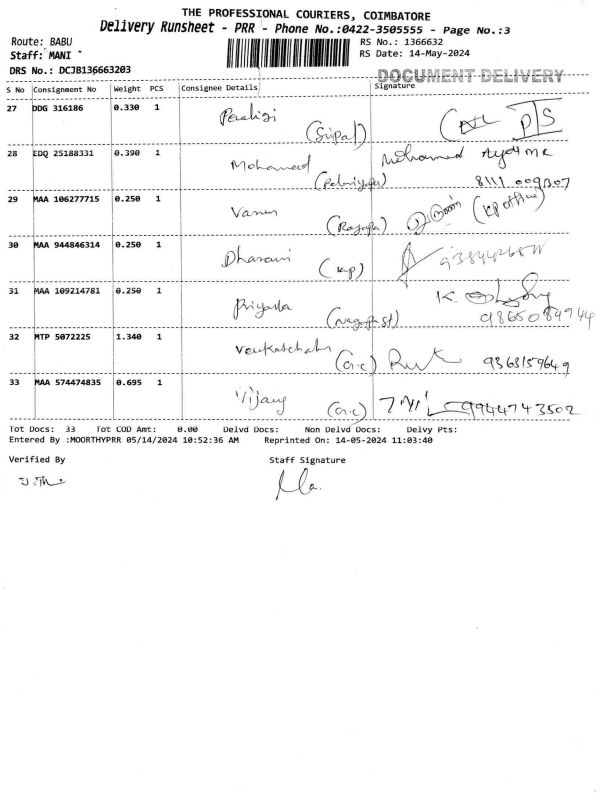 THE PROFESSIONAL COURIERS, COIMBATORE
Delivery Runsheet - PRR - Phone No.:0422-3505555 - Page No.:3
Route: BABU
RS No.: 1366632
Staff: MANI
RS Date: 14-May-2024
DRS No.: DCJB136663203
DOCUMENT DELIVERY
S No Consignment No Weight PCS Consignee Details Signature
27 DDG 316186 0.330 1
(Sripal)
28 EDQ 25188331 0.390 1 Mohamed Mohamed
8111 009307
29 MAA 106277715 0.250 1 Varun (KP office)
30 MAA 944846314 0.250 1 Dharani (KP)
31 MAA 109214781 0.250 1 Priyanka K.
9865089944
32 MTP 5072225 1.340 1 (G.C) 9363159649
33 MAA 574474835 0.695 1 Vijay (G.C) 9944743502
Tot Docs: 33 Tot COD Amt: 0.00 Delvd Docs: Non Delvd Docs: Delvy Pts:
Entered By :MOORTHYPRR 05/14/2024 10:52:36 AM Reprinted On: 14-05-2024 11:03:40
Verified By Staff Signature